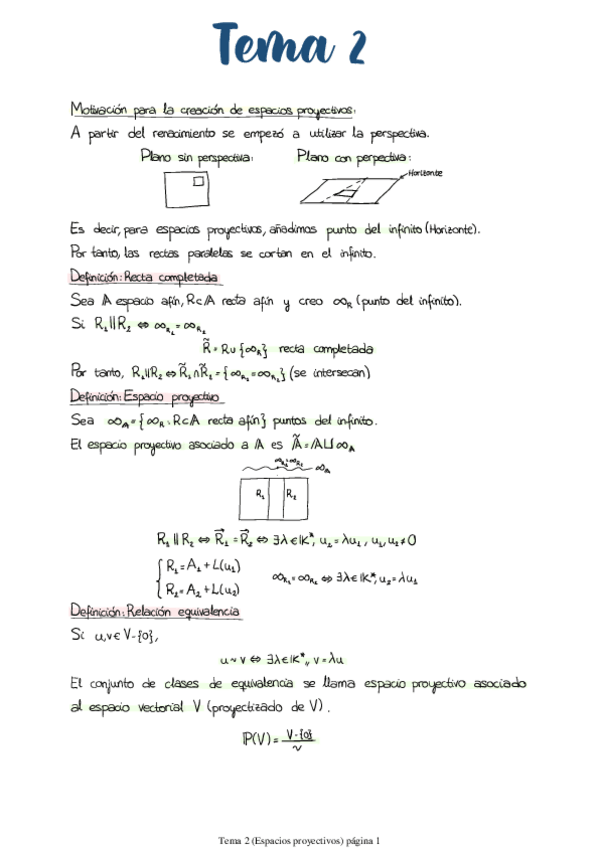 Tema 2
Motivación para la creación de espacios proyectivos:
A partir del renacimiento se empezó a utilizar la perspectiva.
Plano sin perspectiva: Plano con perpectiva:
Horizonte
Es decir, para espacios proyectivos, añadimos punto del infinito (Horizonte).
Por tanto, las rectas paralelas se cortan en el infinito.
Definición: Recta completada
Sea 𝔸 espacio afín, R⊂𝔸 recta afín y creo ∞_R (punto del infinito).
Si R₁∥R₂ ⇔ ∞_R₁ = ∞_R₂
R̃ = R∪{∞_R} recta completada
Por tanto, R₁∥R₂ ⇔ R̃₁∩R̃₁ = {∞_R₁ = ∞_R₂} (se intersecan)
Definición: Espacio proyectivo
Sea ∞_𝔸 = {∞_R : R⊂𝔸 recta afín} puntos del infinito.
El espacio proyectivo asociado a 𝔸 es 𝔸̃ = 𝔸⊔∞_𝔸
∞_R₁ = ∞_R₂
∞_𝔸
R₁ R₂
R₁ ∥ R₂ ⇔ R⃗₁ = R⃗₂ ⇔ ∃λ∈𝕂*, u₂ = λu₁, u₁,u₂≠0
R₁ = A₁ + L(u₁)
∞_R₁ = ∞_R₂ ⇔ ∃λ∈𝕂*, u₂ = λu₁
R₂ = A₂ + L(u₂)
Definición: Relación equivalencia
Si u,v∈V-{0},
u ~ v ⇔ ∃λ∈𝕂*, v = λu
El conjunto de clases de equivalencia se llama espacio proyectivo asociado
al espacio vectorial V (proyectizado de V).
ℙ(V) = V-{0} / ~
Tema 2 (Espacios proyectivos) página 1